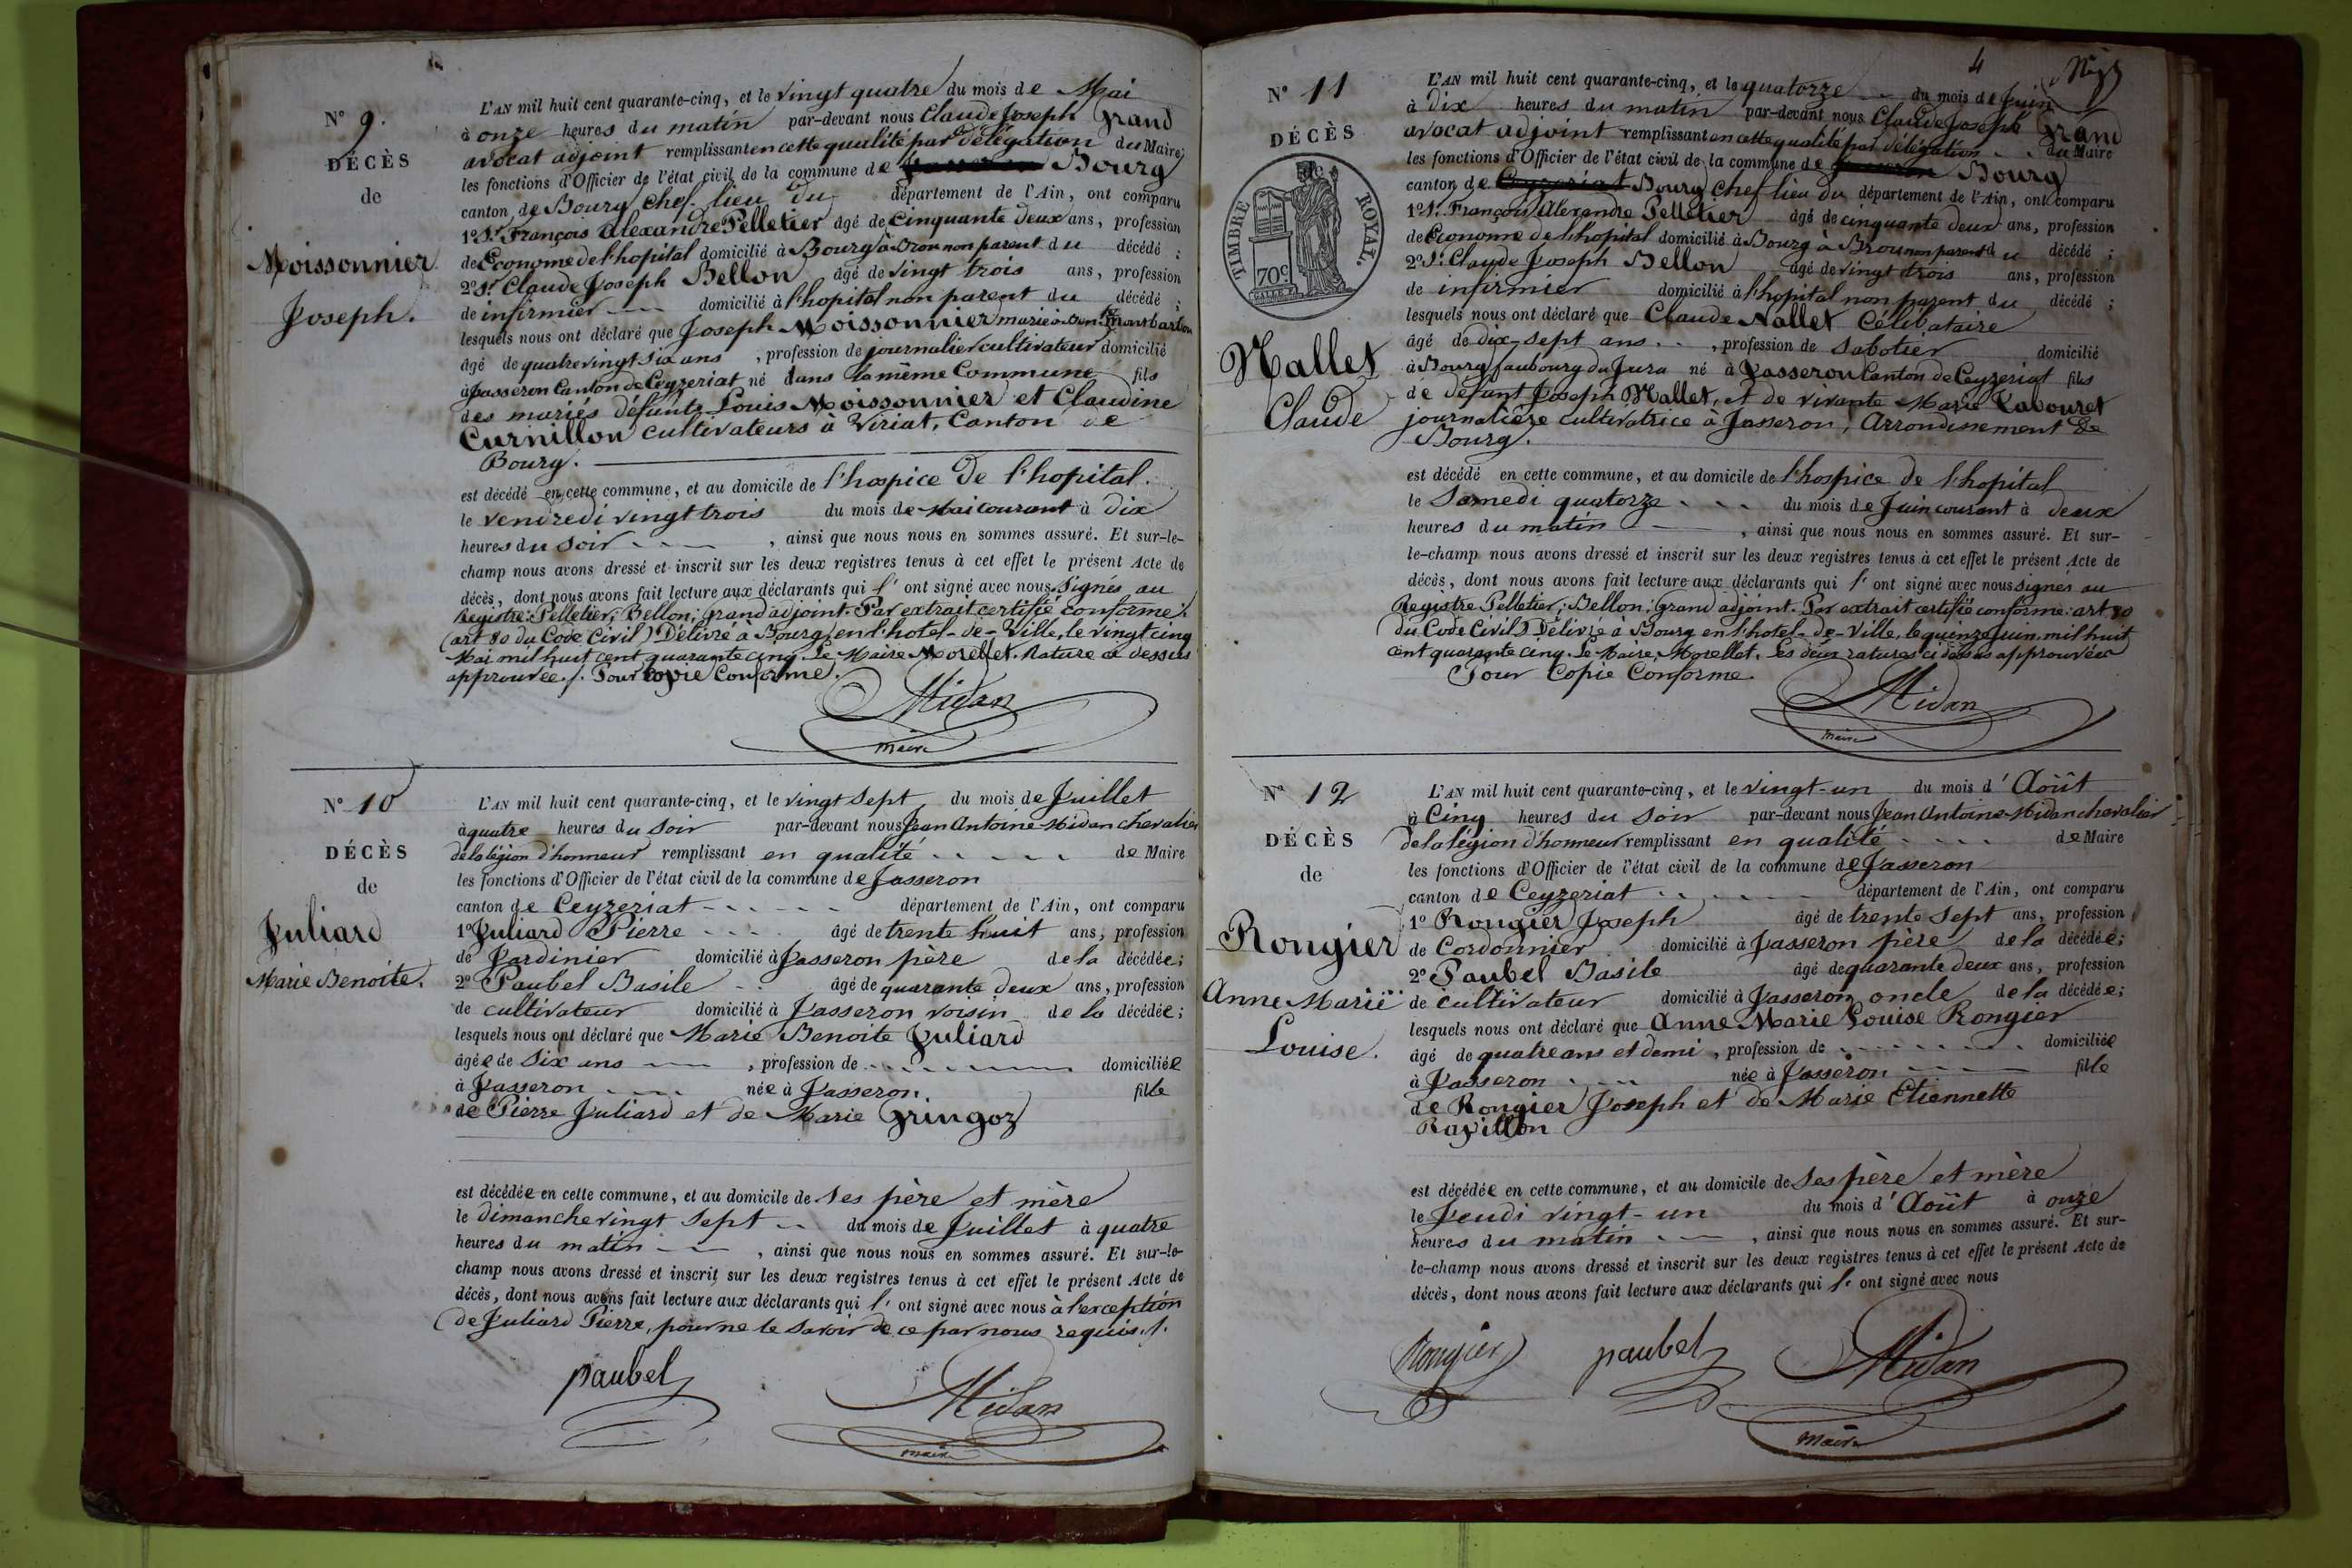 N° 9.
DÉCÈS
de
Moissonnier
Joseph.
L'AN mil huit cent quarante-cinq, et le vingt quatre du mois de Mai
à onze heures du matin par-devant nous Claude Joseph Grand
avocat adjoint remplissant en cette qualité par délégation du Maire
les fonctions d'Officier de l'état civil de la commune de Bourg
canton de Bourg chef-lieu du département de l'Ain, ont comparu
1° Sr François Alexandre Pelletier âgé de cinquante deux ans, profession
de Econome de l'hopital domicilié à Bourg à Brou non parent du décédé ;
2° Sr Claude Joseph Bellon âgé de vingt trois ans, profession
de infirmier domicilié à l'hopital non parent du décédé ;
lesquels nous ont déclaré que Joseph Moissonnier marié à
âgé de quatre vingt six ans , profession de journalier cultivateur domicilié
à Jasseron Canton de Ceyzeriat né dans la même Commune fils
des mariés défunts Louis Moissonnier et Claudine
Curnillon cultivateurs à Viriat, Canton de
Bourg.
est décédé en cette commune, et au domicile de l'hospice de l'hopital.
le vendredi vingt trois du mois de Mai courant à dix
heures du soir , ainsi que nous nous en sommes assuré. Et sur-le-
champ nous avons dressé et inscrit sur les deux registres tenus à cet effet le présent Acte de
décès, dont nous avons fait lecture aux déclarants qui l' ont signé avec nous signés au
Registre: Pelletier; Bellon; Grand adjoint. Par extrait certifié conforme.
(art 80 du Code Civil) Délivré à Bourg en l'hotel-de-Ville, le vingt cinq
Mai mil huit cent quarante cinq Le Maire Morellet. Rature ci dessus
approuvée./. Pour copie Conforme.
Midan
maire
N° 10
DÉCÈS
de
Juliard
Marie Benoite.
L'AN mil huit cent quarante-cinq, et le vingt sept du mois de Juillet
à quatre heures du soir par-devant nous Jean Antoine Midan chevalier
de la légion d'honneur remplissant en qualité de Maire
les fonctions d'Officier de l'état civil de la commune de Jasseron
canton de Ceyzeriat département de l'Ain, ont comparu
1° Juliard Pierre âgé de trente huit ans, profession
de Jardinier domicilié à Jasseron père de la décédée;
2° Paubel Basile âgé de quarante deux ans, profession
de cultivateur domicilié à Jasseron voisin de la décédée;
lesquels nous ont déclaré que Marie Benoite Juliard
âgée de six ans , profession de domiciliée
à Jasseron née à Jasseron fille
de Pierre Juliard et de Marie Gringoz
est décédée en cette commune, et au domicile de ses père et mère
le dimanche vingt sept du mois de Juillet à quatre
heures du matin , ainsi que nous nous en sommes assuré. Et sur-le-
champ nous avons dressé et inscrit sur les deux registres tenus à cet effet le présent Acte de
décès, dont nous avons fait lecture aux déclarants qui l' ont signé avec nous à l'exception
de Juliard Pierre, pour ne le savoir de ce par nous requis./.
paubel
Midan
maire
4
N° 11
DÉCÈS
TIMBRE ROYAL.
70c
Nallet
Claude
L'AN mil huit cent quarante-cinq, et le quatorze du mois de Juin
à dix heures du matin par-devant nous Claude Joseph Grand
avocat adjoint remplissant en cette qualité par délégation du Maire
les fonctions d'Officier de l'état civil de la commune de Jasseron Bourg
canton de Ceyzeriat Bourg chef lieu du département de l'Ain, ont comparu
1° Sr François Alexandre Pelletier âgé de cinquante deux ans, profession
de Econome de l'hopital domicilié à Bourg à Brou non parent du décédé ;
2° Sr Claude Joseph Bellon âgé de vingt trois ans, profession
de infirmier domicilié à l'hopital non parent du décédé ;
lesquels nous ont déclaré que Claude Nallet Célibataire
âgé de dix-sept ans , profession de sabotier domicilié
à Bourg faubourg du Jura né à Jasseron Canton de Ceyzeriat fils
de défunt Joseph Nallet, et de vivante Marie Labouret
journalière cultivatrice à Jasseron, Arrondissement de
Bourg.
est décédé en cette commune, et au domicile de l'hospice de l'hopital
le Samedi quatorze du mois de Juin courant à deux
heures du matin , ainsi que nous nous en sommes assuré. Et sur-
le-champ nous avons dressé et inscrit sur les deux registres tenus à cet effet le présent Acte de
décès, dont nous avons fait lecture aux déclarants qui l' ont signé avec nous signés au
Registre Pelletier; Bellon; Grand adjoint. Par extrait certifié conforme: art 80
du Code Civil) Délivré à Bourg en l'hotel-de-Ville, le quinze juin mil huit
cent quarante cinq. Le Maire, Morellet. Les deux ratures ci dessus approuvées
Pour Copie Conforme.
Midan
maire
N° 12
DÉCÈS
de
Rongier
Anne Marie
Louise.
L'AN mil huit cent quarante-cinq, et le vingt-un du mois d'Août
à Cinq heures du soir par-devant nous Jean Antoine Midan chevalier
de la légion d'honneur remplissant en qualité de Maire
les fonctions d'Officier de l'état civil de la commune de Jasseron
canton de Ceyzeriat département de l'Ain, ont comparu
1° Rongier Joseph âgé de trente sept ans, profession
de Cordonnier domicilié à Jasseron père de la décédée;
2° Paubel Basile âgé de quarante deux ans, profession
de cultivateur domicilié à Jasseron oncle de la décédée;
lesquels nous ont déclaré que Anne Marie Louise Rongier
âgé de quatre ans et demi , profession de domiciliée
à Jasseron née à Jasseron fille
de Rongier Joseph et de Marie Etiennette
Ravillon
est décédée en cette commune, et au domicile de ses père et mère
le Jeudi vingt-un du mois d'Août à onze
heures du matin , ainsi que nous nous en sommes assuré. Et sur-
le-champ nous avons dressé et inscrit sur les deux registres tenus à cet effet le présent Acte de
décès, dont nous avons fait lecture aux déclarants qui l' ont signé avec nous
Rongier paubel Midan
maire